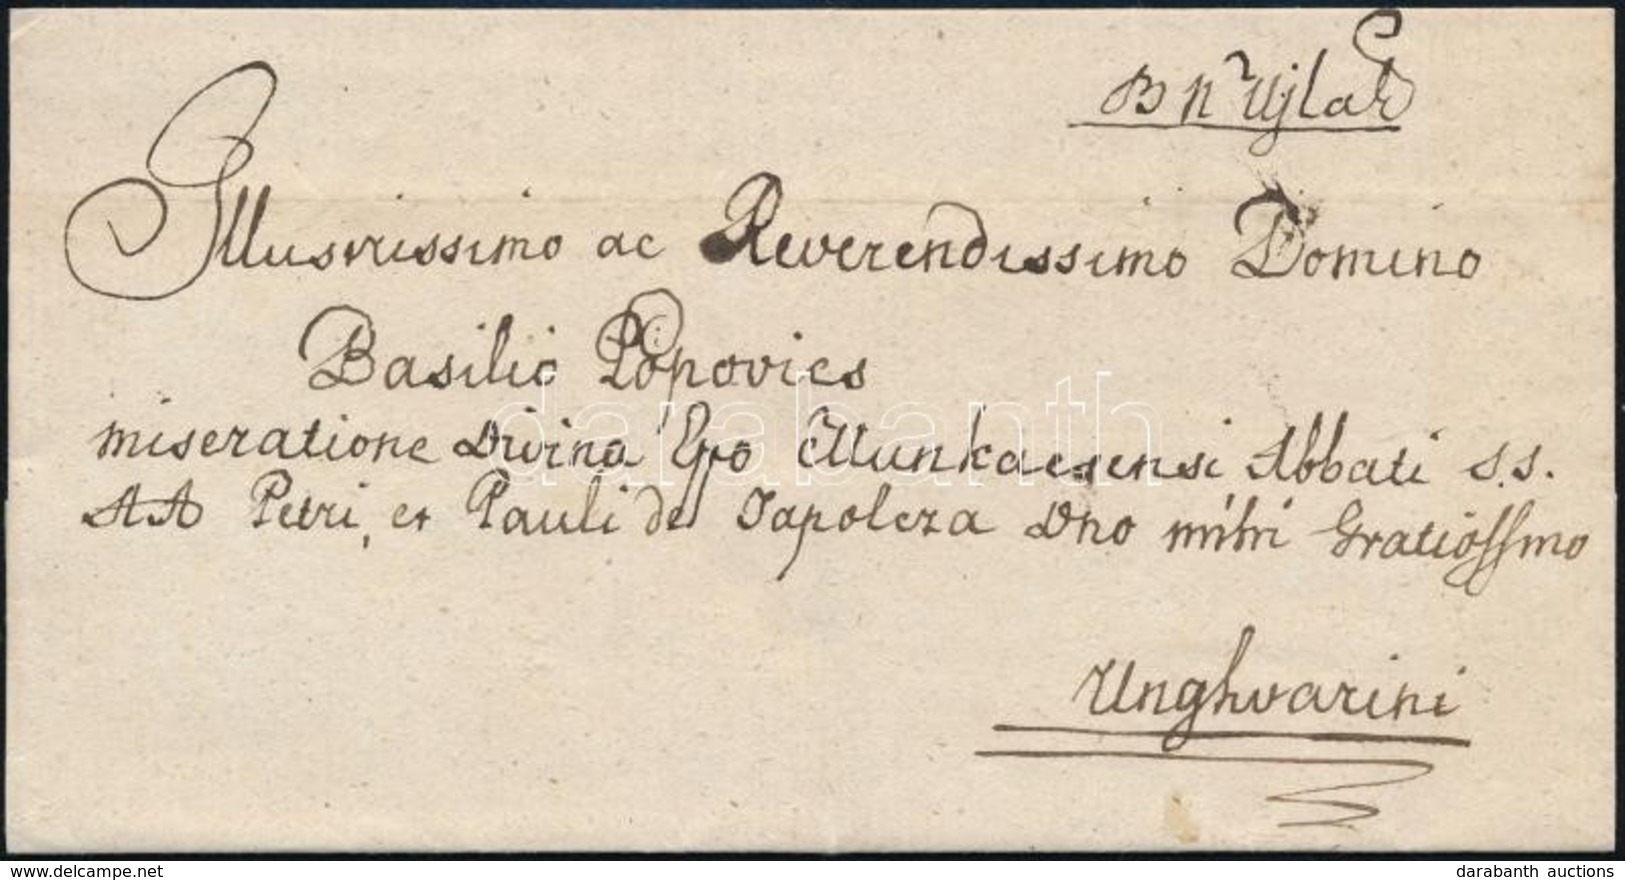 B N Ujlak
Illustrissimo ac Reverendissimo Domino
Basilio Popovics
miseratione Divina Epo Munkacsensi Abbati S.S.
AA Petri, et Pauli de Tapolcza Dno mihi Gratiossmo
Unghvarini
darabanth
delcampe.net
darabanth auctions